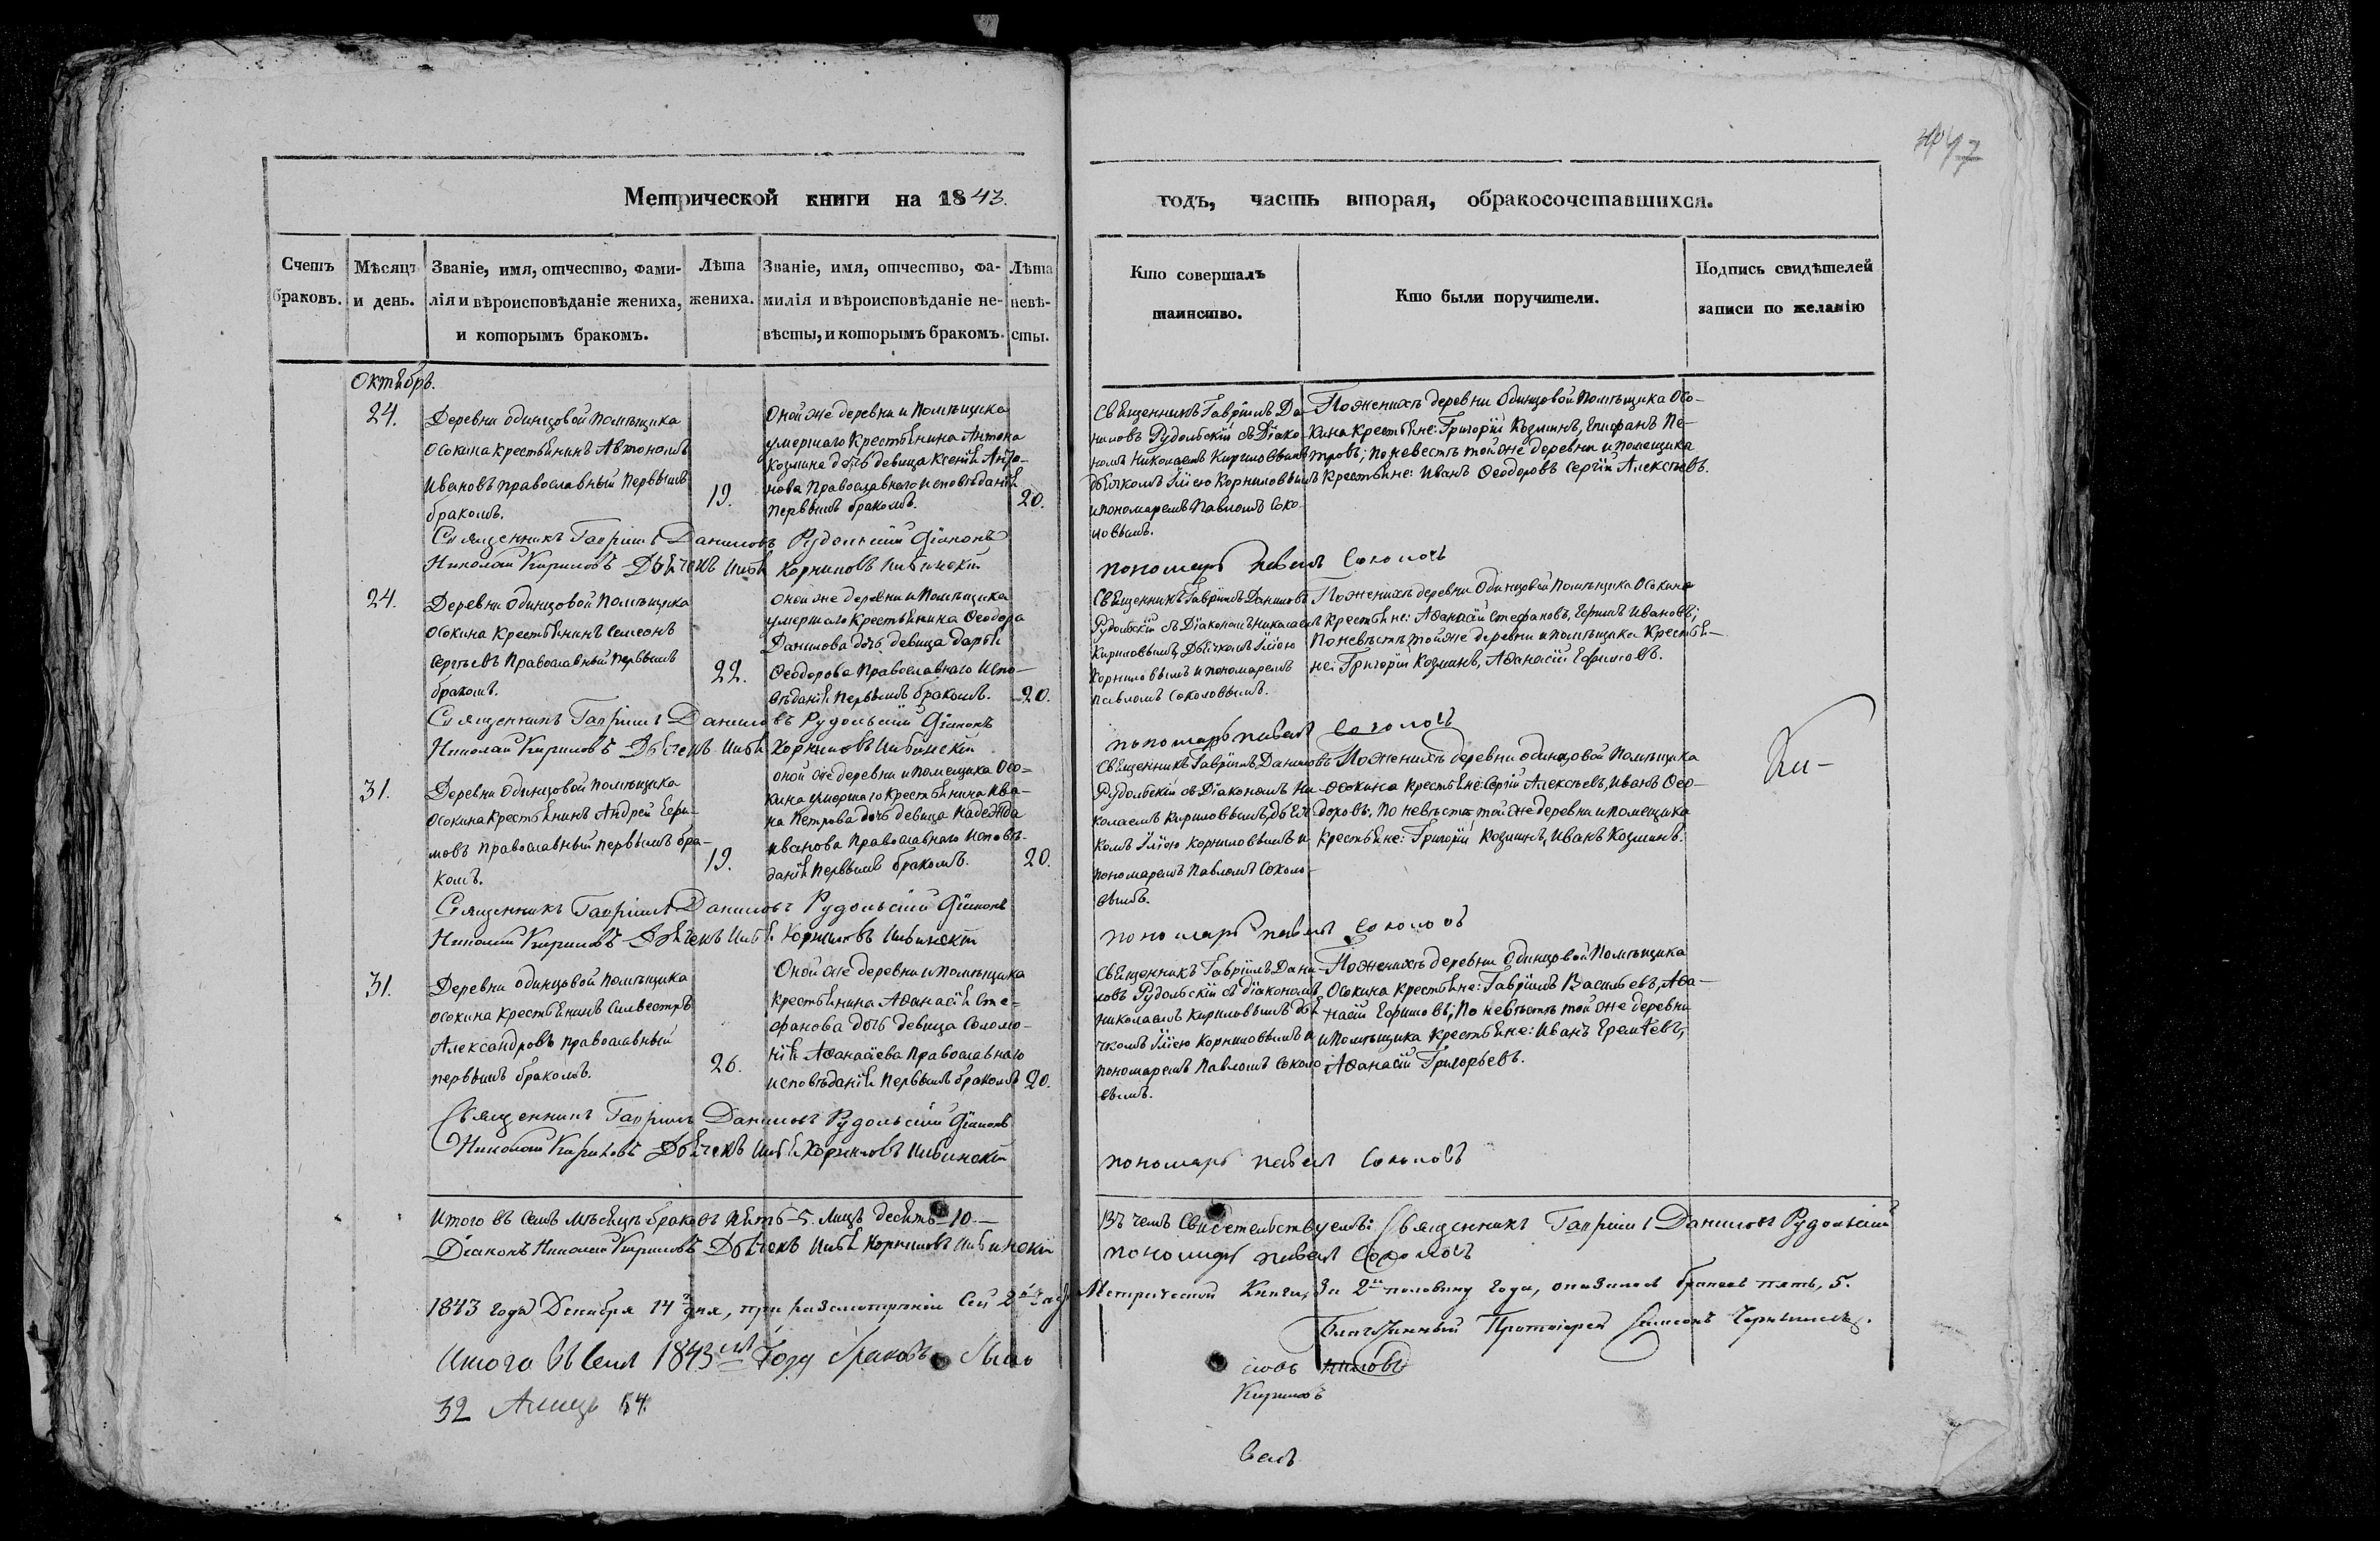 97
Метрической книги на 1843.
годъ, часть вторая, обракосочетавшихся.
Счетъ
браковъ.
Мѣсяцъ
и день.
Званіе, имя, отчество, фами-
лія и вѣроисповѣданіе жениха,
и которымъ бракомъ.
Лѣта
жениха.
Званіе, имя, отчество, фа-
милія и вѣроисповѣданіе не-
вѣсты, и которымъ бракомъ.
Лѣта
невѣ-
сты.
Кто совершалъ
таинство.
Кто были поручители.
Подпись свидѣтелей
записи по желанію
Октябрь.
24.
Деревни одинцовой помѣщика
Осокина крестьянинъ Автономъ
Ивановъ православный первымъ
бракомъ.
19.
Оной же деревни и помѣщика
умершаго крестьянина Антона
Козмина дочь девица Ксенія Анто-
нова Православнаго исповѣданія
первымъ бракомъ.
20.
Священникъ Гавріилъ Да-
ниловъ Рудольскій съ Діако-
номъ Николаемъ Кириловымъ
дьячкомъ Иліею Корниловымъ
и пономаремъ Павломъ Соко-
ловымъ.
По женихѣ деревни Одинцовой помѣщика Осо-
кина крестьяне: Григорій Козминъ, Епифанъ Пе-
тровъ; по невестѣ той же деревни и помещика
крестьяне: Иванъ Ѳеодоровъ Сергій Алексѣевъ.
Священникъ Гавріилъ Даниловъ Рудольскій Діаконъ
Николай Кириловъ Дьячекъ Илія Корниловъ
пономарь Павелъ Соколовъ
24.
Деревни Одинцовой Помѣщика
Осокина Крестьянинъ Симеонъ
Сергѣевъ Православный первымъ
бракомъ.
22.
Оной же деревни и Помѣщика
умершаго Крестьянина Ѳеодора
Данилова дочь девица Дарья
Ѳеодорова Православнаго Испо-
вѣданія первымъ бракомъ.
20.
Священникъ Гавріилъ Даниловъ
Рудольскій съ Діакономъ Николаемъ
Кириловымъ, Дьячкомъ Иліею
Корниловымъ и пономаремъ
Павломъ Соколовымъ.
По женихѣ деревни Одинцовой Помѣщика Осокина
крестьяне: Аѳанасій Стефановъ, Ефимъ Ивановъ;
По невѣстѣ той же деревни и помѣщика Крестья-
не: Григорій Козминъ, Аѳанасій Ефимовъ.
Священникъ Гавріилъ Даниловъ Рудольскій Діаконъ
Николай Кириловъ Дьячекъ Илія Корниловъ
пономарь Павелъ Соколовъ
31.
Деревни Одинцовой помѣщика
Осокина Крестьянинъ Андрей Ефи-
мовъ православный первымъ бра-
комъ.
19.
Оной же деревни и помещика Осо-
кина умершаго Крестьянина Ива-
на Петрова дочь девица Надежда
Иванова Православнаго Исповѣ-
данія первымъ бракомъ.
20.
Священникъ Гавріилъ Даниловъ
Рудольскій съ Діакономъ Ни-
колаемъ Кириловымъ, дьяч-
комъ Иліею Корниловымъ и
пономаремъ Павломъ Соколо-
вымъ.
По женихѣ деревни одинцовой Помѣщика
Осокина крестьяне: Сергій Алексѣевъ, Иванъ Ѳео-
доровъ. По невѣстѣ той же деревни и помещика
Крестьяне: Григорій Козминъ, Иванъ Козминъ.
Священникъ Гавріилъ Даниловъ Рудольскій Діаконъ
Николай Кириловъ Дьячекъ Илія Корниловъ
пономарь Павелъ Соколовъ
31.
Деревни одинцовой помѣщика
Осокина Крестьянинъ Силвестръ
Александровъ православный
первымъ бракомъ.
26.
Оной же деревни и помѣщика
крестьянина Аѳанасія Сте-
фанова дочь девица Соломо-
нія Аѳанасіева Православнаго
исповѣданія первымъ бракомъ
20.
Священникъ Гавріилъ Дани-
ловъ Рудольскій съ діакономъ
Николаемъ Кириловымъ дья-
чкомъ Иліею Корниловымъ и
пономаремъ Павломъ Соколо-
вымъ.
По женихѣ деревни Одинцовой Помѣщика
Осокина крестьяне: Гавріилъ Васильевъ, Аѳа-
насій Ефимовъ; По невѣстѣ той же деревни
и Помѣщика крестьяне: Иванъ Еремѣевъ,
Аѳанасій Григорьевъ.
Священникъ Гавріилъ Даниловъ Рудольскій Діаконъ
Николай Кириловъ Дьячекъ Илія Корниловъ
пономарь Павелъ Соколовъ
Итого въ семъ мѣсяцѣ браковъ пять-5. лицъ десять-10.-
Діаконъ Николай Кириловъ Дьячекъ Илія Корниловъ
Въ чемъ Свидетельствуемъ: Священникъ Гавріилъ Даниловъ Рудольскій
пономарь Павелъ Соколовъ
1843 года Декабря 14 дня, при разсмотреніи сей 2й части Метрической Книги, за 2ю половину года, оказалось браковъ пять, 5.
Благочинный Протоіерей Симеонъ
Итого въ семъ 1843мъ Году браковъ было
32 А лицъ 64.
Кириловъ